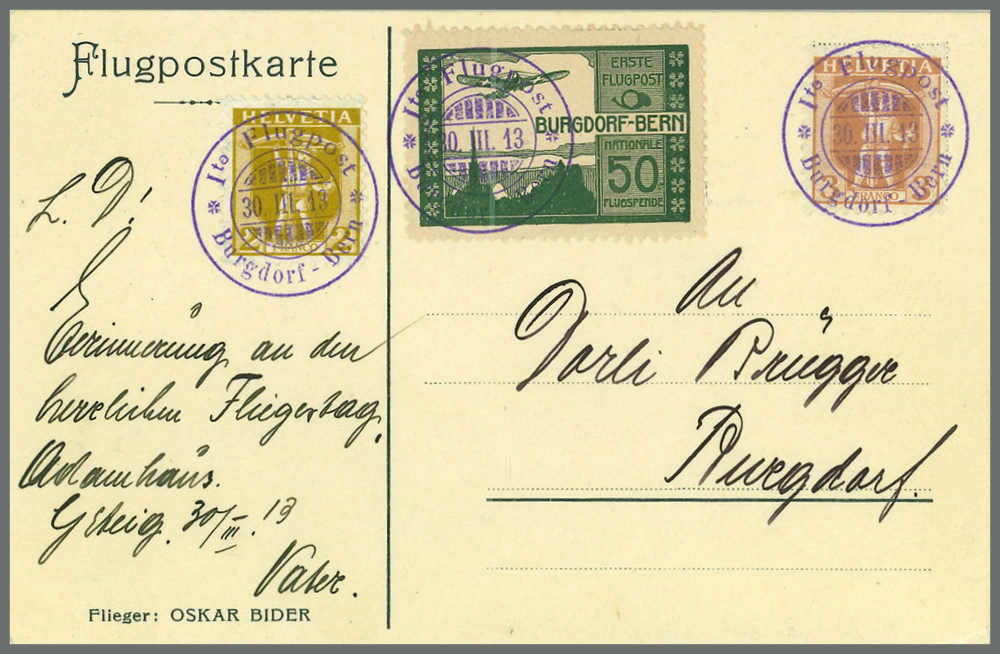 Flugpostkarte
HELVETIA
2 FRANCO 2
Ite Flugpost
30. III. 13
Burgdorf - Bern
ERSTE
FLUGPOST
BURGDORF-BERN
NATIONALE
50
FLUGSPENDE
Ite Flugpost
30. III. 13
Bern
HELVETIA
FRANCO
Ite Flugpost
30. III. 13
Burgdorf Bern
L. D!
Erinnerung an den
herrlichen Fliegertag.
Vater.
Flieger: OSKAR BIDER
An
Dorli Brügger
Burgdorf.